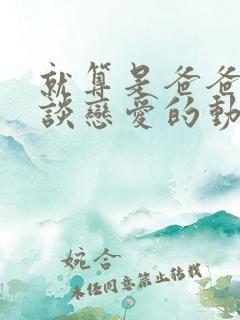 就算是爸爸
談戀愛的動
婉合
未經同意禁止轉載